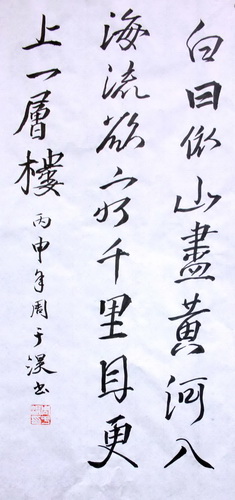 白日依山盡黃河入
海流欲穷千里目更
上一層樓
丙申年周于书